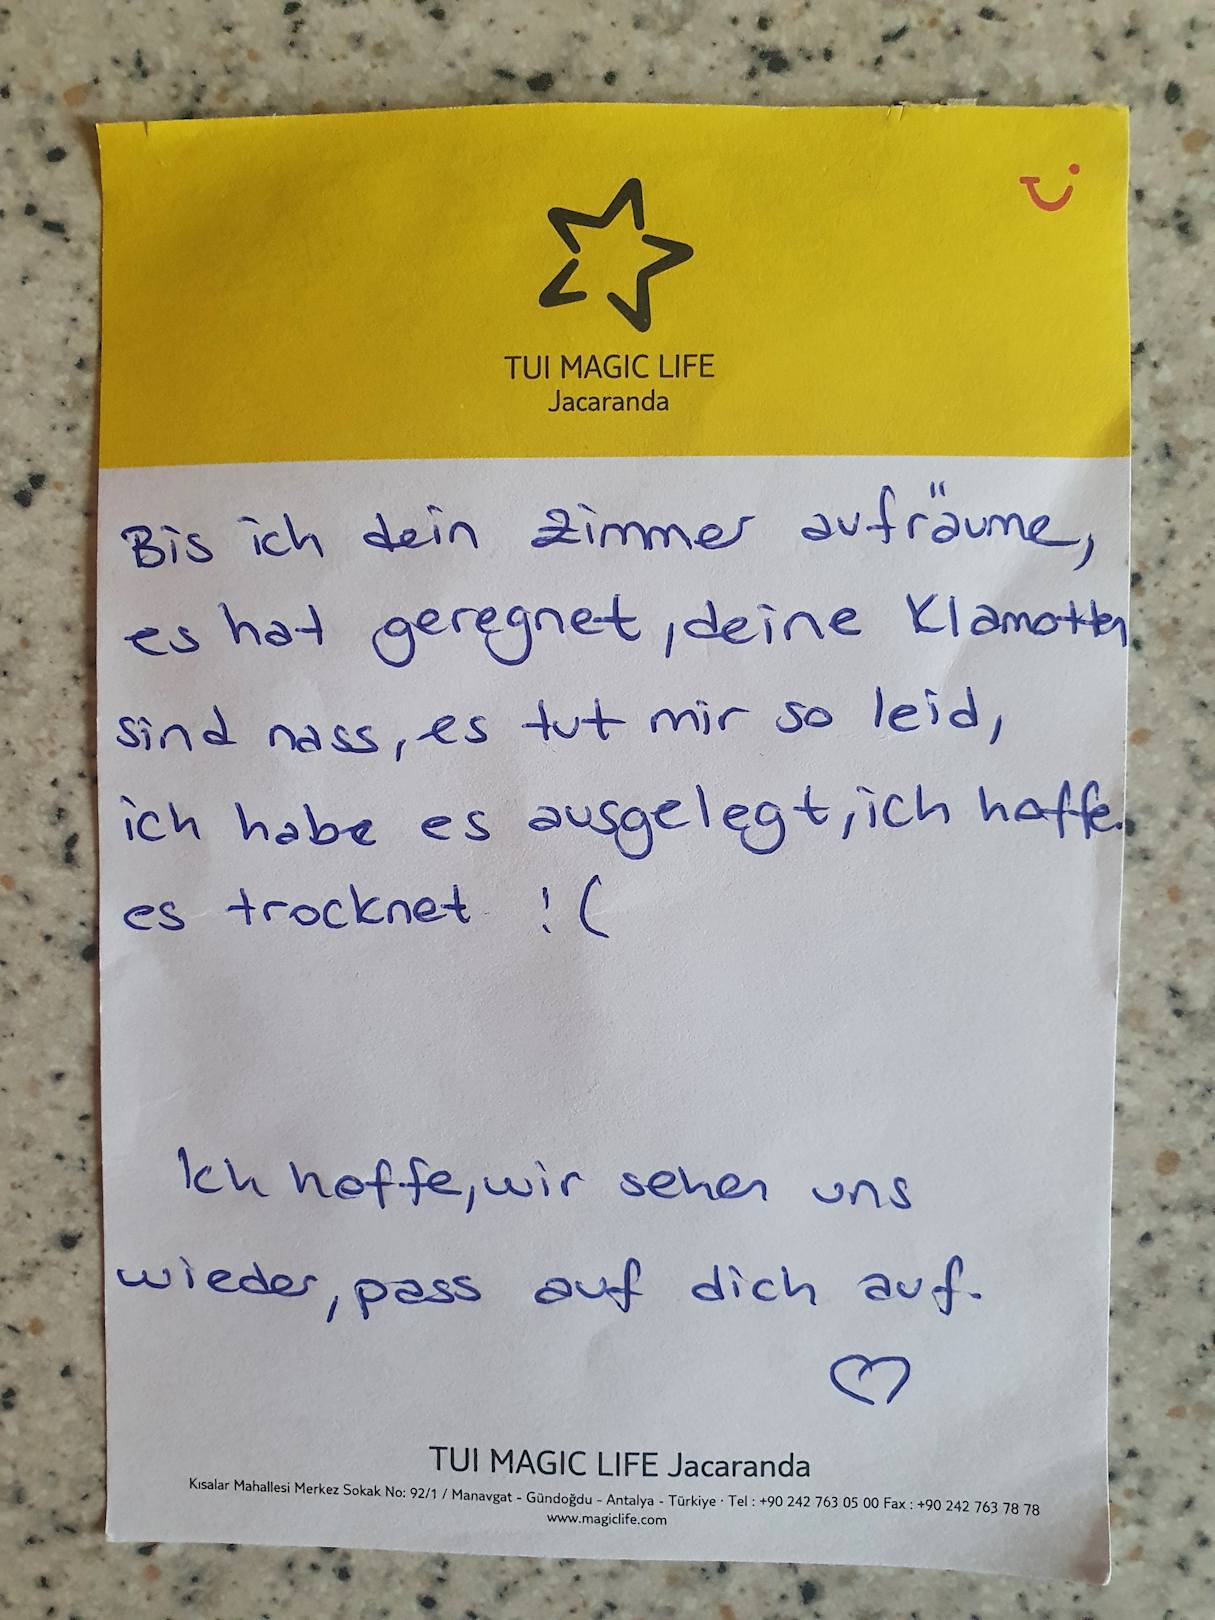 TUI MAGIC LIFE
Jacaranda
Bis ich dein Zimmer aufräume,
es hat geregnet, deine Klamotten
sind nass, es tut mir so leid,
ich habe es ausgelegt, ich hoffe
es trocknet !(
Ich hoffe, wir sehen uns
wieder, pass auf dich auf.
TUI MAGIC LIFE Jacaranda
Kısalar Mahallesi Merkez Sokak No: 92/1 / Manavgat - Gündoğdu - Antalya - Türkiye · Tel : +90 242 763 05 00 Fax : +90 242 763 78 78
www.magiclife.com